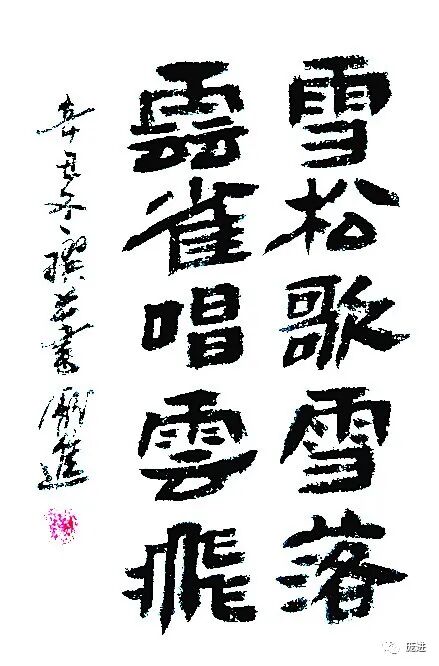 雪松歌雪落
雲雀唱雲飛
辛丑冬撰并書龐進
庞进